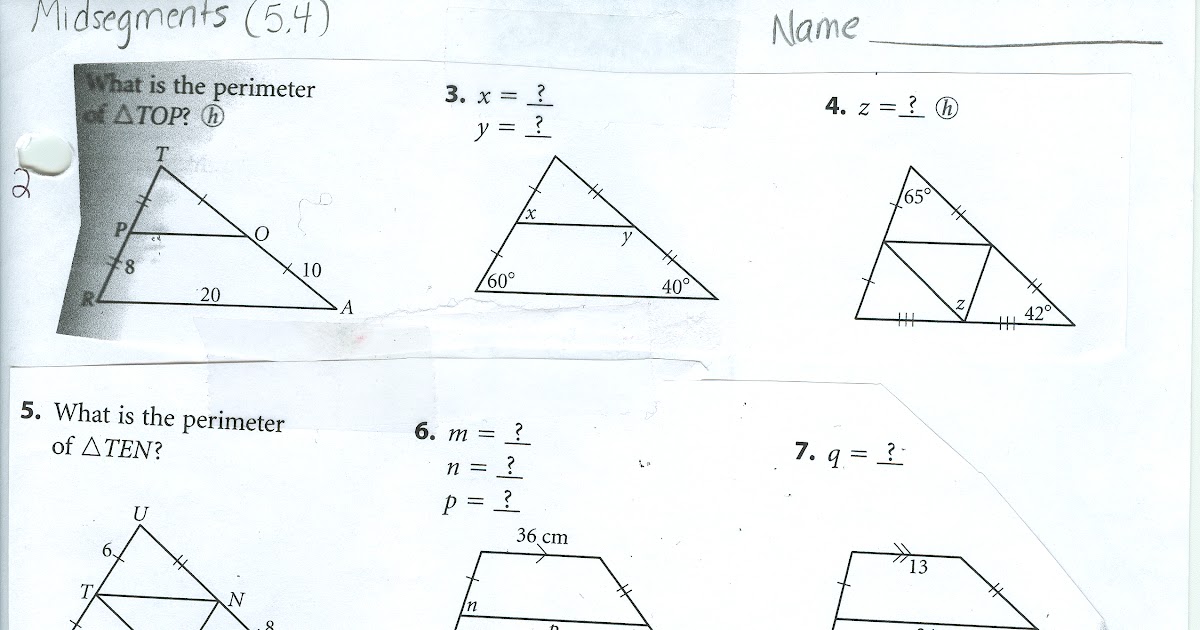 Midsegments (5.4)
Name
What is the perimeter
of △TOP? ⓗ
2
T
P
O
8
10
R
20
A
3. x = ?
y = ?
x
y
60°
40°
4. z = ? ⓗ
65°
z
42°
5. What is the perimeter
of △TEN?
U
6
T
N
8
6. m = ?
n = ?
p = ?
36 cm
n
7. q = ?
13